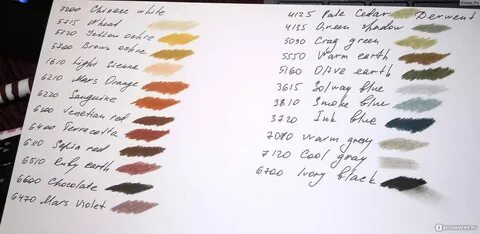 7200 Chinese white
5715 Wheat
5720 Yellow ochre
5700 Brown ochre
1610 Light Sienna
6210 Mars Orange
6220 Sanguine
6200 Venetian red
6400 Terracotta
6110 Sepia red
6510 Ruby earth
6600 Chocolate
6470 Mars Violet
4125 Pale Cedar Derwent
4135 Green Shadow
5090 Crag green
5550 Warm earth
5160 Olive earth
3615 Solway blue
3810 Smoke blue
3720 Ink blue
7010 Warm grey
7120 Cool gray
6700 Ivory black